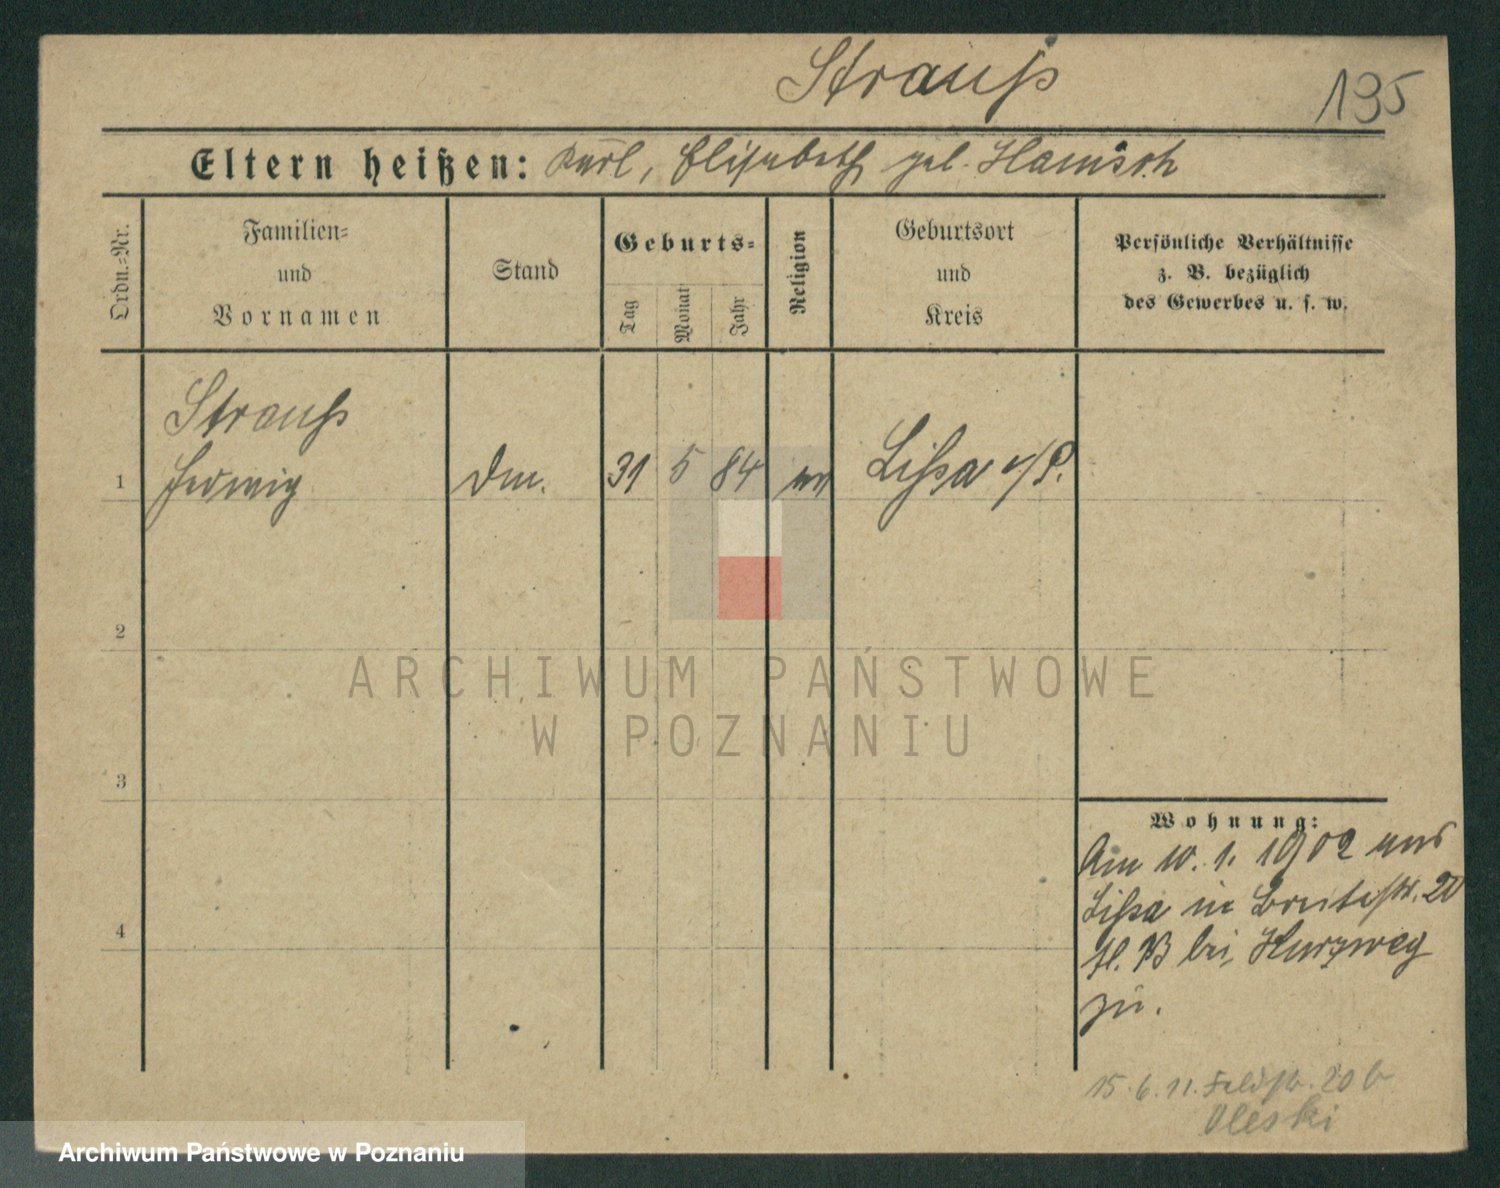 Strauß
195
Eltern heißen: Karl, Elisabeth geb. Hamisch
Ordn.-Nr.
Familien-
und
Vornamen
Stand
Geburts-
Tag
Monat
Jahr
Religion
Geburtsort
und
Kreis
Persönliche Verhältnisse
z. B. bezüglich
des Gewerbes u. s. w.
Strauß
1 Hedwig 31 5 84 Lissa i/P.
2
3
4
Wohnung:
Am 10. 1. 1902 aus
Lissa in Breitestr. 20
bei Kurzweg
zu.
15. 6. 11. Feldstr. 20 b
Oleski
ARCHIWUM PAŃSTWOWE
W POZNANIU
Archiwum Państwowe w Poznaniu